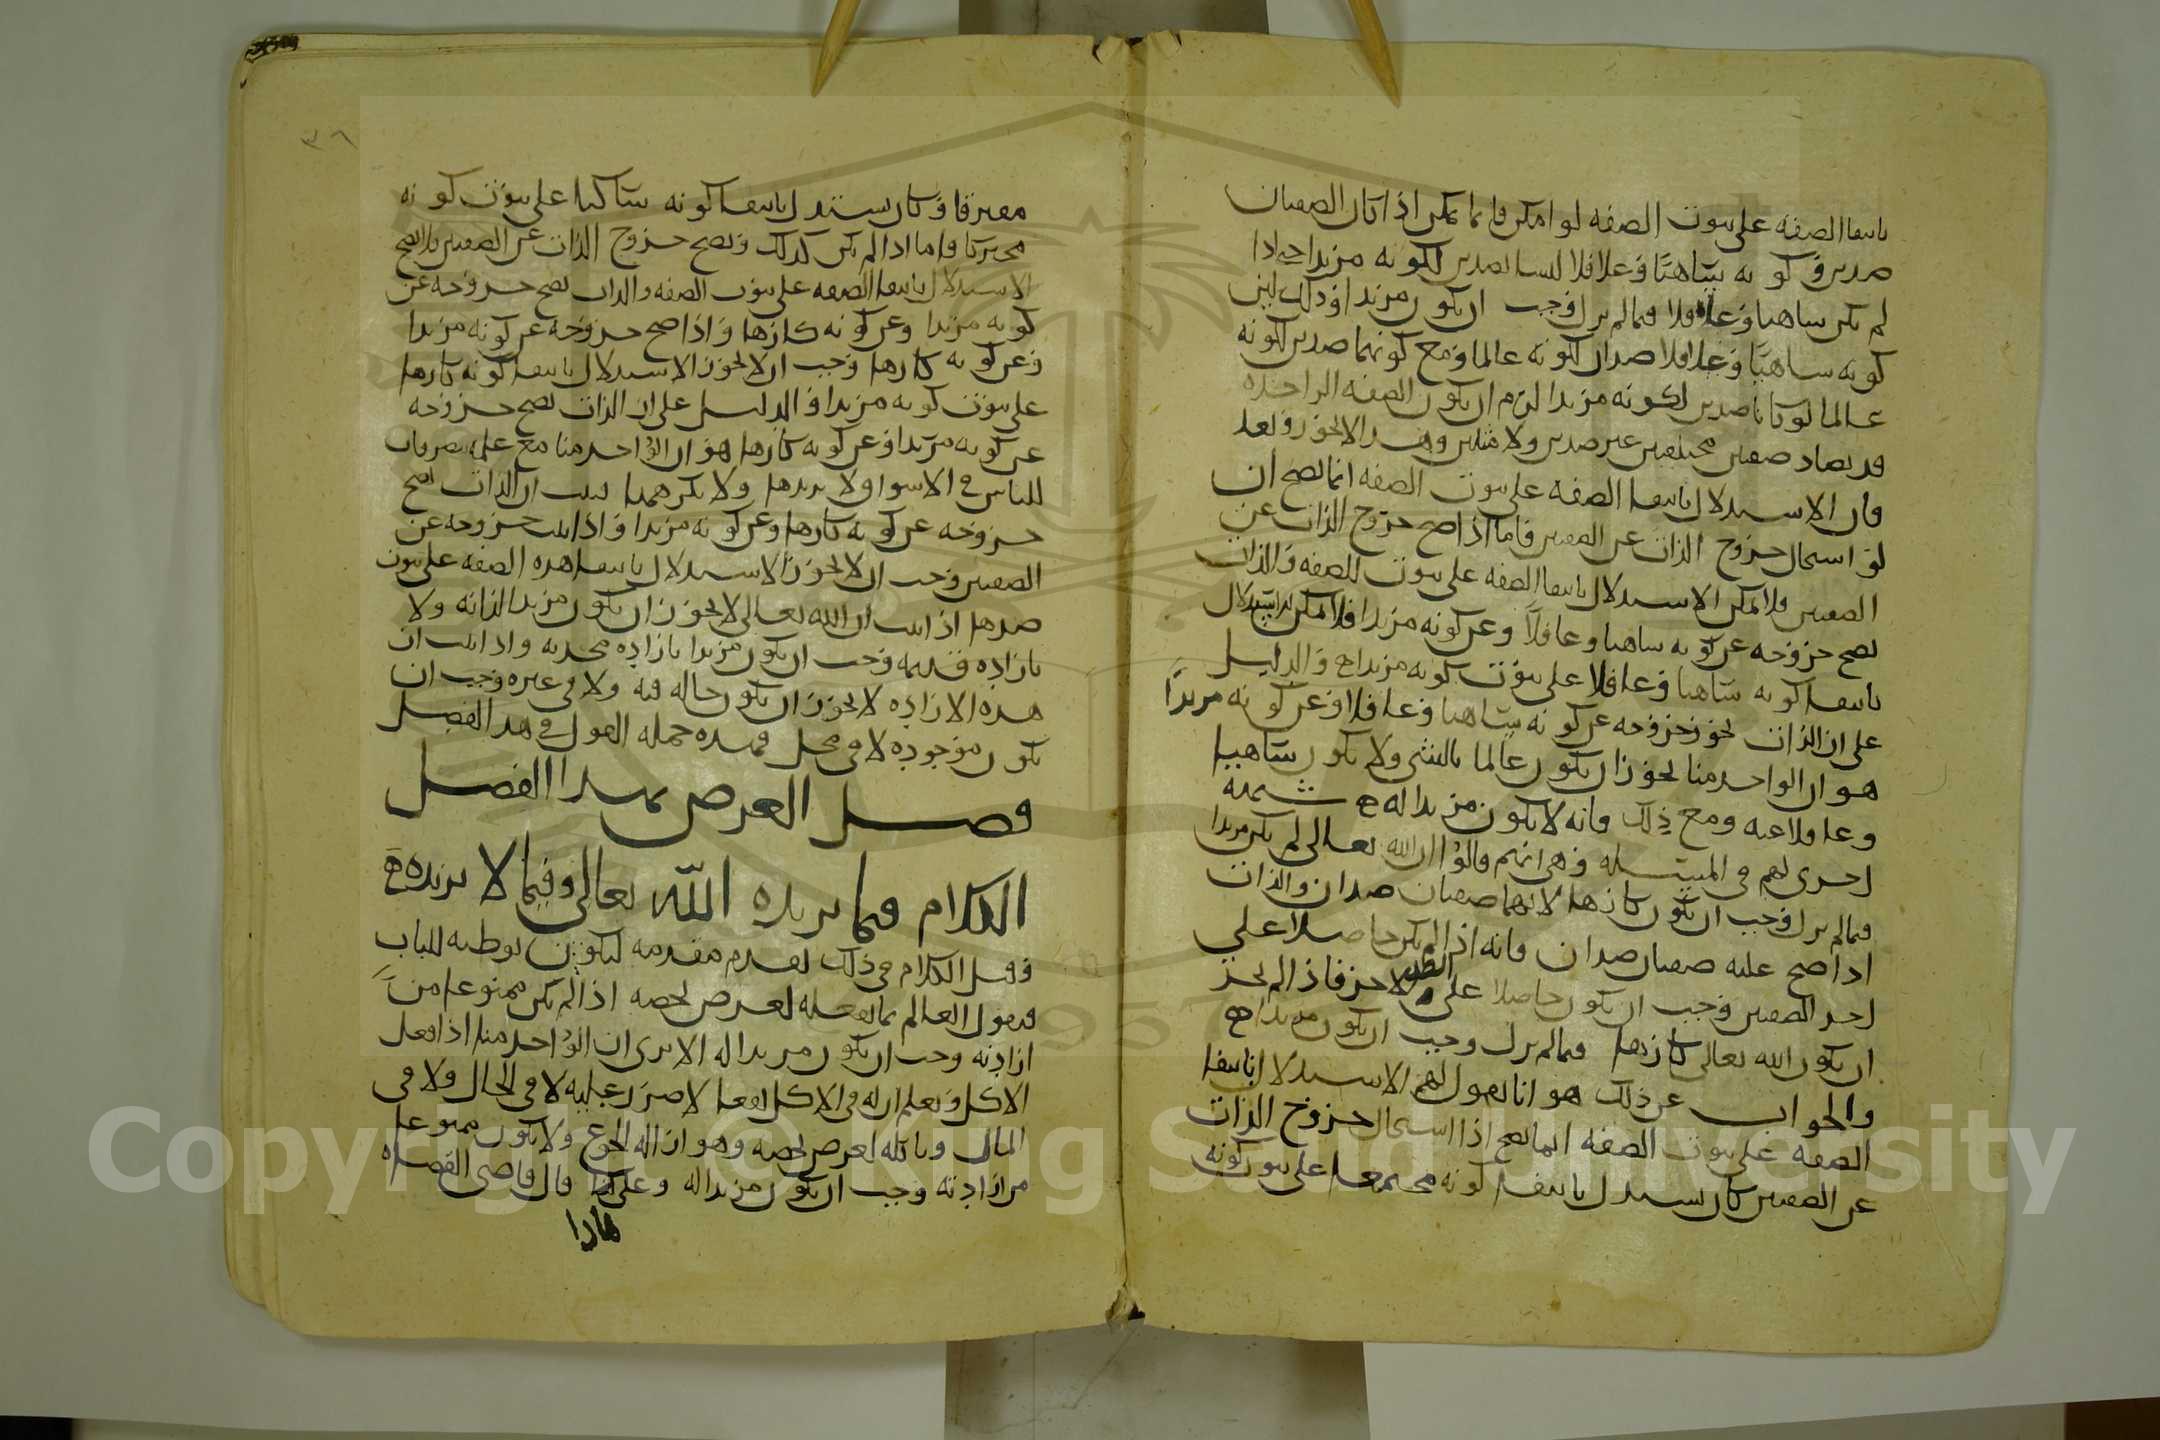 بانتفا الصفه على ثبوت الصفه لو امكن فانما يمكن اذا كان الصفتان
ضدين وكونه ساهيًا وغافلا ليسا بضدين لكونه مريدا فاذا
لم يكن ساهيا وغافلا فيما لم يزل وجب ان يكون مريدا وذلك لان
كونه ساهيًا وغافلا ضدان لكونه عالما ومع كونهما ضدين لكونه
عالما لو كانا ضدين لكونه مريدا لزم ان يكون الصفه الواحده
قد يضاد صفتين مختلفتين غير ضدين ولا مثلين وهذا لا يجوز وبعد
فان الاستدلال بانتفا الصفه على ثبوت الصفه انما يصح ان
لو استحال خروج الذات عن الصفتين فاما اذا صح خروج الذات عن
الصفتين فلا يمكن الاستدلال بانتفا الصفه على ثبوت الصفه والذات
يصح خروجه عن كونه ساهيا وغافلاً وعن كونه مريدا فلا يمكن الاستدلال
بانتفا كونه ساهيا وغافلا على ثبوت كونه مريدا والدليل
على ان الذات يجوز خروجه عن كونه ساهيا وغافلا وعن كونه مريدًا
هو ان الواحد منا يجوز ان يكون عالما بالشي ولا يكون ساهيا
وغافلا عنه ومع ذلك فانه لا يكون مريدا له شبهة
اخرى لهم في المسئله وهي انهم قالوا ان الله تعالى لم يكن مريدا
فيما لم يزل وجب ان يكون كارها لانهما صفتان ضدان والذات
اذا صح عليه صفتان ضدان فانه اذا لم يكن حاصلا على
احد الصفتين وجب ان يكون حاصلا على الاخر فاذا لم يجز
ان يكون الله تعالى كارها فيما لم يزل وجب ان يكون مريدا
والجواب عن ذلك هو انا نقول لهم الاستدلال بانتفا
الصفه على ثبوت الصفه انما يصح اذا استحال خروج الذات
عن الصفتين كان يستدل بانتفا كونه مجتمعا على ثبوت كونه
مفترقا وكان يستدل بانتفا كونه ساكنا على ثبوت كونه
متحركا فاما اذا لم يكن كذلك ويصح خروج الذات عن الصفتين فلا يصح
الاستدلال بانتفا الصفه على ثبوت الصفه والذات يصح خروجه عن
كونه مريدا وعن كونه كارها واذا صح خروجه عن كونه مريدا
وعن كونه كارها وجب ان لا يجوز الاستدلال بانتفا كونه كارها
على ثبوت كونه مريدا والدليل على ان الذات يصح خروجه
عن كونه مريدا وعن كونه كارها هو ان الواحد منا مع علمه بتصرفات
للناس في الاسواق لا يريدها ولا يكرهها ثبت ان الذات يصح
خروجه عن كونه كارها وعن كونه مريدا واذا ثبت خروجه عن
الصفتين وجب ان لا يجوز الاستدلال بانتفا هذه الصفه على ثبوت
ضدها اذا ثبت ان الله تعالى لا يجوز ان يكون مريدا لذاته ولا
بارادة قديمه وجب ان يكون مريدا بارادة محدثه واذا ثبت ان
هذه الاراده لا يجوز ان يكون حاله فيه ولا في غيره وجب ان
يكون موجوده لا في محل فهذه جمله القول في هذا الفصل
فصل الغرض بهذا الفصل
الكلام فيما يريده الله تعالى وفيما لا يريده
وقبل الكلام في ذلك نقدم مقدمه ليكون توطيه للباب
فنقول العالم بما يفعله لغرض يخصه اذا لم يكن ممنوعا من
ارادته وجب ان يكون مريدا له الا يرى ان الواحد منا اذا فعل
الاكل ويعلم ان له في الاكل نفعا لا ضرر عليه لا في الحال ولا في
المال وياكله لغرض يخصه وهو ازاله الجوع ولا يكون ممنوعا
من ارادته وجب ان يكون مريدا له وعلى هذا قال قاضي القضاه
هذا
٣٦
Copyright © King Saud University
1957